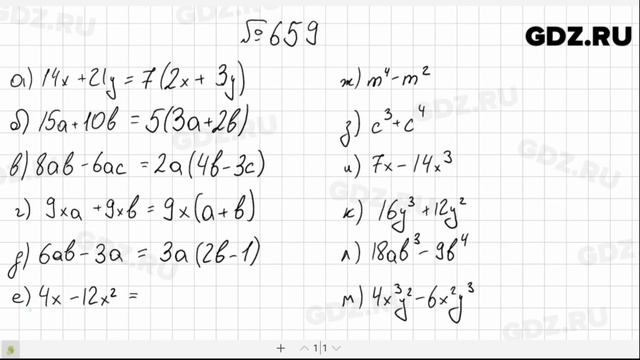 № 659
GDZ.RU
а) 14x + 21y = 7(2x + 3y)
б) 15a + 10b = 5(3a + 2b)
в) 8ab - 6ac = 2a(4b - 3c)
г) 9xa + 9xb = 9x(a + b)
д) 6ab - 3a = 3a(2b - 1)
е) 4x - 12x² =
ж) m⁴ - m²
з) c³ + c⁴
и) 7x - 14x³
к) 16y³ + 12y²
л) 18ab³ - 9b⁴
м) 4x³y² - 6x²y³
+ 1|1